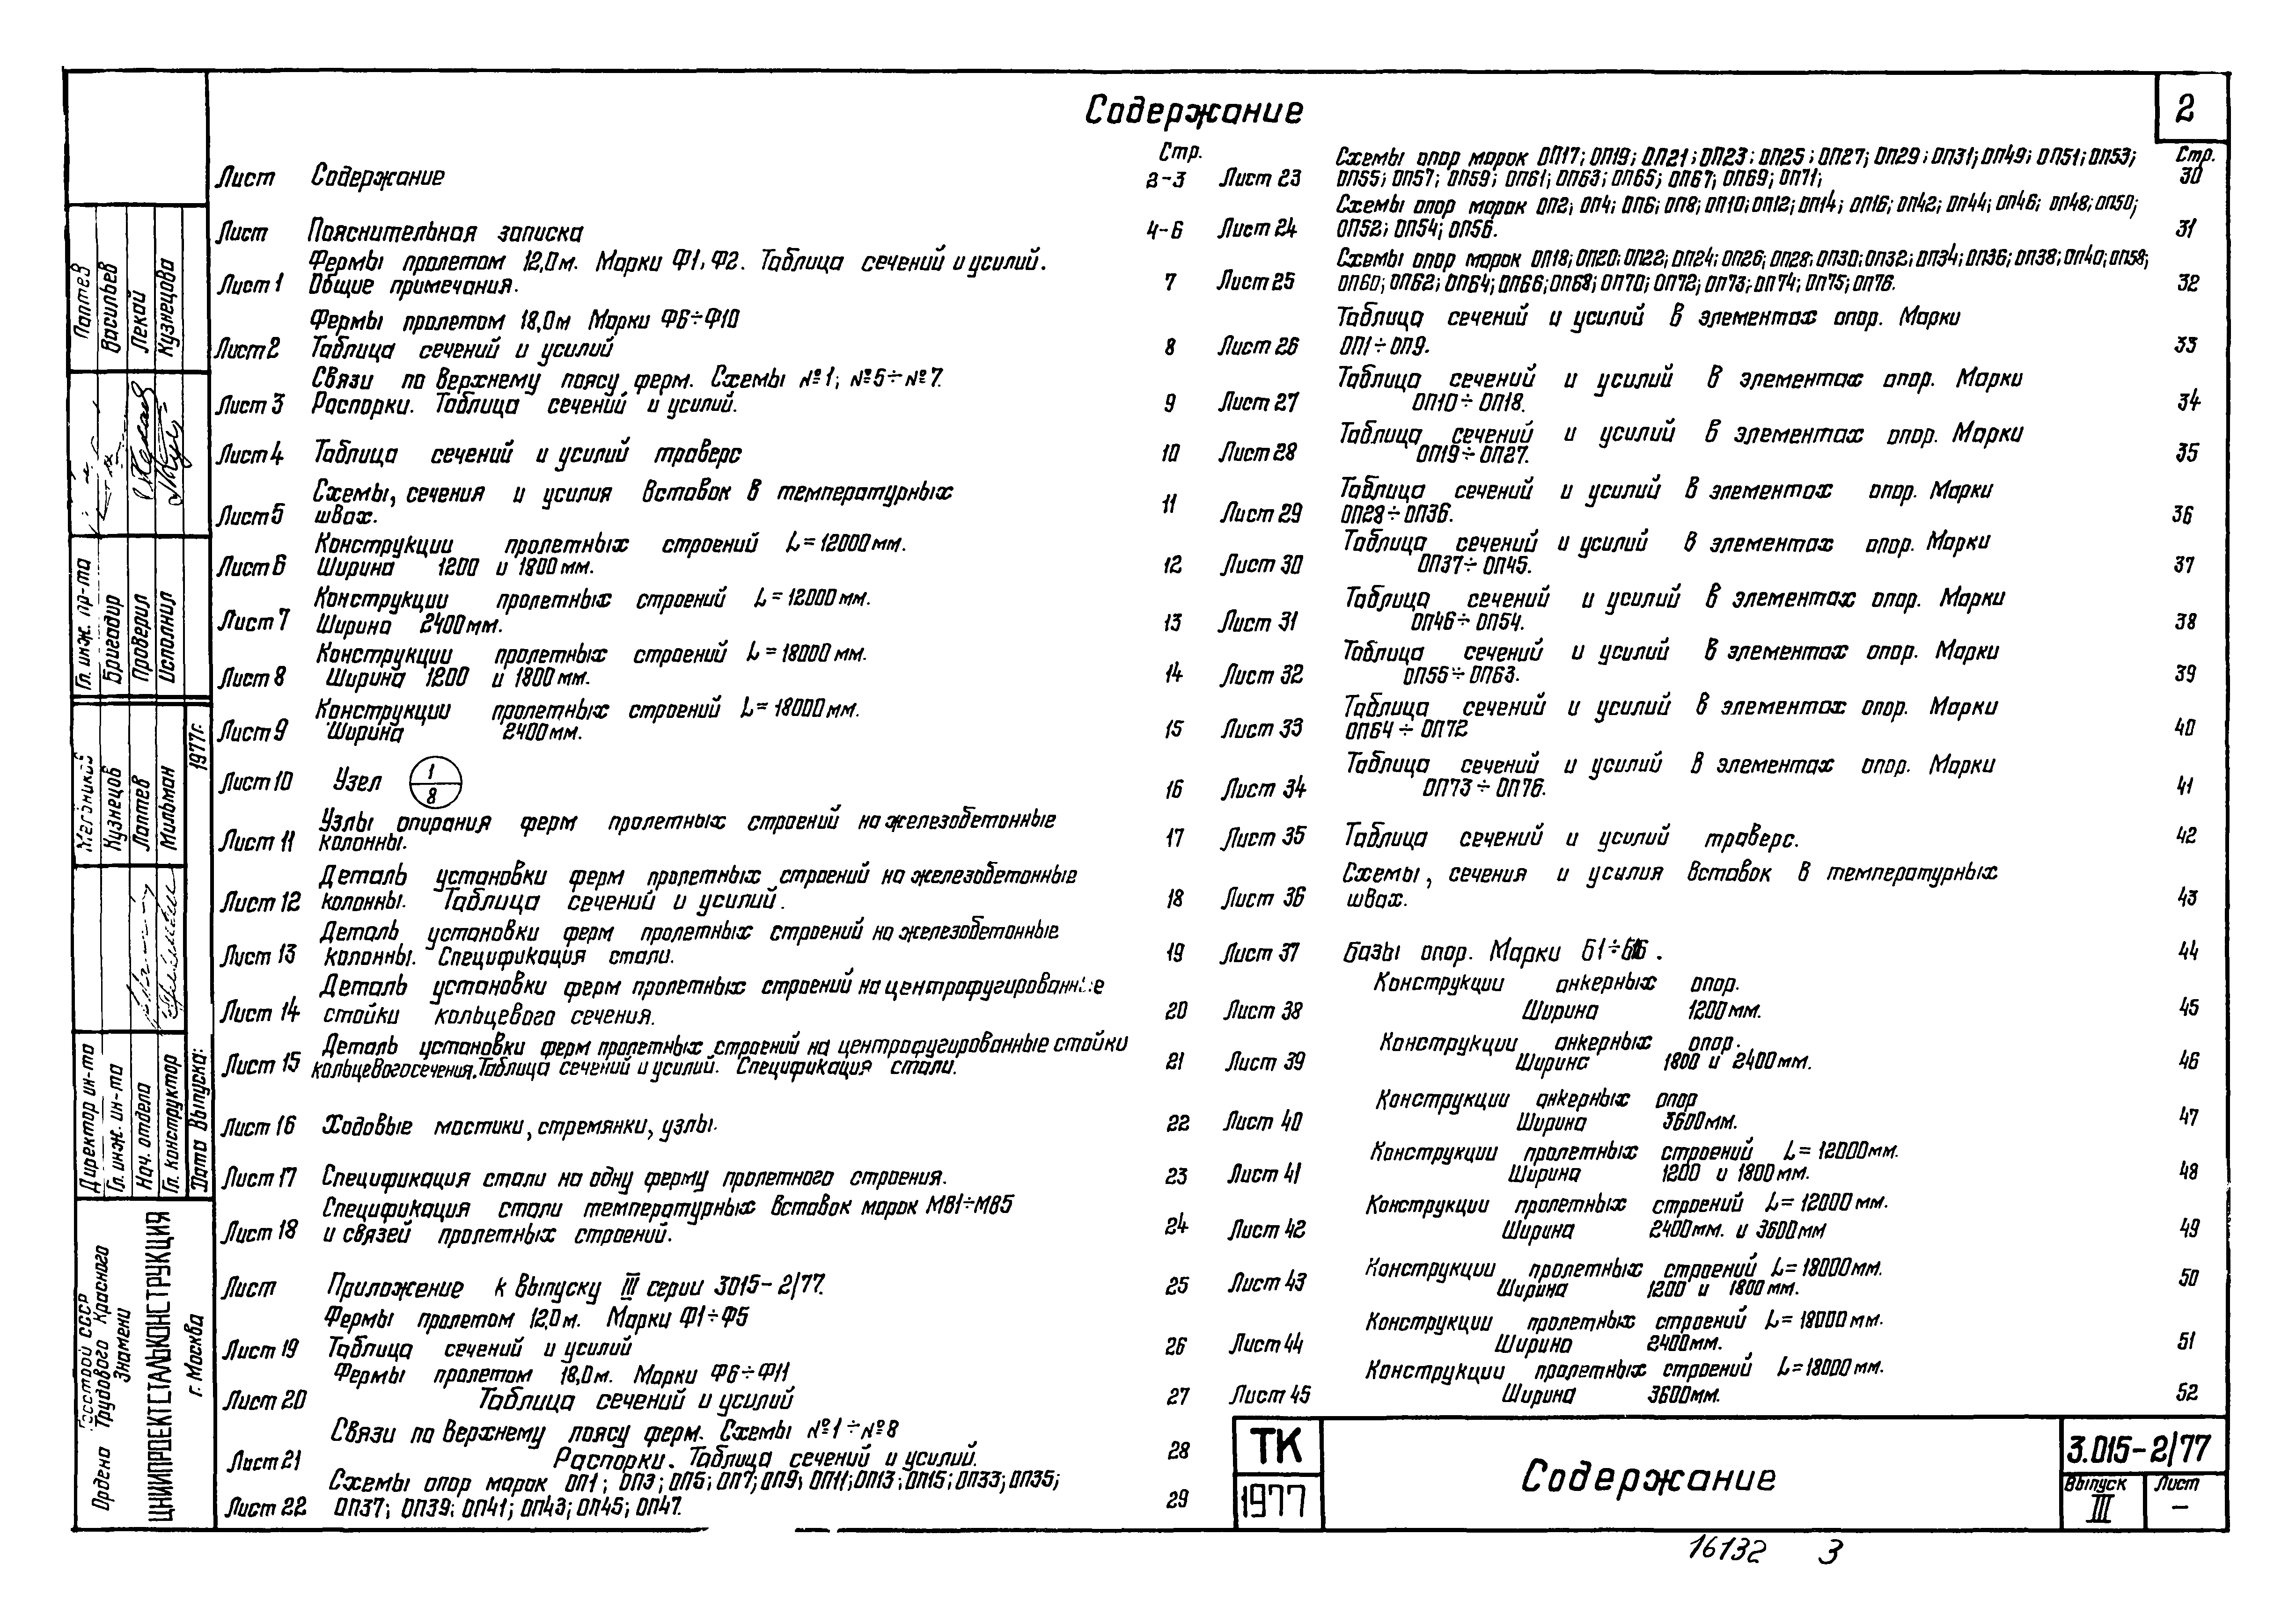 Содержание
2
Стр.
Лист Содержание 2-3
Лист Пояснительная записка 4-6
Фермы пролетом 12,0м. Марки Ф1, Ф2. Таблица сечений и усилий.
Лист 1 Общие примечания. 7
Фермы пролетом 18,0м Марки Ф6÷Ф10
Лист 2 Таблица сечений и усилий 8
Связи по верхнему поясу ферм. Схемы №1; №5÷№7.
Лист 3 Распорки. Таблица сечений и усилий. 9
Лист 4 Таблица сечений и усилий траверс 10
Схемы, сечения и усилия вставок в температурных
Лист 5 швах. 11
Конструкции пролетных строений L=12000мм.
Лист 6 Ширина 1200 и 1800мм. 12
Конструкции пролетных строений L=12000мм.
Лист 7 Ширина 2400мм. 13
Конструкции пролетных строений L=18000мм.
Лист 8 Ширина 1200 и 1800мм. 14
Конструкции пролетных строений L=18000мм.
Лист 9 Ширина 2400мм. 15
Лист 10 Узел 1/8 16
Узлы опирания ферм пролетных строений на железобетонные
Лист 11 колонны. 17
Деталь установки ферм пролетных строений на железобетонные
Лист 12 колонны. Таблица сечений и усилий. 18
Деталь установки ферм пролетных строений на железобетонные
Лист 13 колонны. Спецификация стали. 19
Деталь установки ферм пролетных строений на центрофугированные
Лист 14 стойки кольцевого сечения. 20
Деталь установки ферм пролетных строений на центрофугированные стойки
Лист 15 кольцевого сечения. Таблица сечений и усилий. Спецификация стали. 21
Лист 16 Ходовые мостики, стремянки, узлы. 22
Лист 17 Спецификация стали на одну ферму пролетного строения. 23
Спецификация стали температурных вставок марок МВ1÷МВ5
Лист 18 и связей пролетных строений. 24
Лист Приложение к выпуску III серии 3015-2/77. 25
Фермы пролетом 12,0м. Марки Ф1÷Ф5
Лист 19 Таблица сечений и усилий 26
Фермы пролетом 18,0м. Марки Ф6÷Ф11
Лист 20 Таблица сечений и усилий 27
Связи по верхнему поясу ферм. Схемы №1÷№8
Лист 21 Распорки. Таблица сечений и усилий. 28
Схемы опор марок ОП1; ОП3; ОП5; ОП7; ОП9; ОП11; ОП13; ОП15; ОП33; ОП35;
Лист 22 ОП37; ОП39; ОП41; ОП43; ОП45; ОП47. 29
Схемы опор марок ОП17; ОП19; ОП21; ОП23; ОП25; ОП27; ОП29; ОП31; ОП49; ОП51; ОП53; Стр.
Лист 23 ОП55; ОП57; ОП59; ОП61; ОП63; ОП65; ОП67; ОП69; ОП71; 30
Схемы опор марок ОП2; ОП4; ОП6; ОП8; ОП10; ОП12; ОП14; ОП16; ОП42; ОП44; ОП46; ОП48; ОП50;
Лист 24 ОП52; ОП54; ОП56. 31
Схемы опор марок ОП18; ОП20; ОП22; ОП24; ОП26; ОП28; ОП30; ОП32; ОП34; ОП36; ОП38; ОП40; ОП58;
Лист 25 ОП60; ОП62; ОП64; ОП66; ОП68; ОП70; ОП72; ОП73; ОП74; ОП75; ОП76. 32
Таблица сечений и усилий в элементах опор. Марки
Лист 26 ОП1÷ОП9. 33
Таблица сечений и усилий в элементах опор. Марки
Лист 27 ОП10÷ОП18. 34
Таблица сечений и усилий в элементах опор. Марки
Лист 28 ОП19÷ОП27. 35
Таблица сечений и усилий в элементах опор. Марки
Лист 29 ОП28÷ОП36. 36
Таблица сечений и усилий в элементах опор. Марки
Лист 30 ОП37÷ОП45. 37
Таблица сечений и усилий в элементах опор. Марки
Лист 31 ОП46÷ОП54. 38
Таблица сечений и усилий в элементах опор. Марки
Лист 32 ОП55÷ОП63. 39
Таблица сечений и усилий в элементах опор. Марки
Лист 33 ОП64÷ОП72 40
Таблица сечений и усилий в элементах опор. Марки
Лист 34 ОП73÷ОП76. 41
Лист 35 Таблица сечений и усилий траверс. 42
Схемы, сечения и усилия вставок в температурных
Лист 36 швах. 43
Лист 37 Базы опор. Марки Б1÷Б16. 44
Конструкции анкерных опор.
Лист 38 Ширина 1200мм. 45
Конструкции анкерных опор.
Лист 39 Ширина 1800 и 2400мм. 46
Конструкции анкерных опор
Лист 40 Ширина 3600мм. 47
Конструкции пролетных строений L=12000мм.
Лист 41 Ширина 1200 и 1800мм. 48
Конструкции пролетных строений L=12000мм.
Лист 42 Ширина 2400мм. и 3600мм 49
Конструкции пролетных строений L=18000мм.
Лист 43 Ширина 1200 и 1800мм. 50
Конструкции пролетных строений L=18000мм.
Лист 44 Ширина 2400мм. 51
Конструкции пролетных строений L=18000мм.
Лист 45 Ширина 3600мм. 52
ТК
1977
Содержание
3.015-2/77
Выпуск Лист
III –
16132 3
Гл. инж. пр-та Лаптев
Бригадир Васильев
Проверил Лекай
Исполнил Кузнецова
Директор ин-та
Гл. инж. ин-та Кузнецов
Нач. отдела Лаптев
Гл. конструктор Мильман
Дата выпуска: 1977г.
Госстрой СССР
Ордена Трудового Красного
Знамени
ЦНИИПРОЕКТСТАЛЬКОНСТРУКЦИЯ
г. Москва